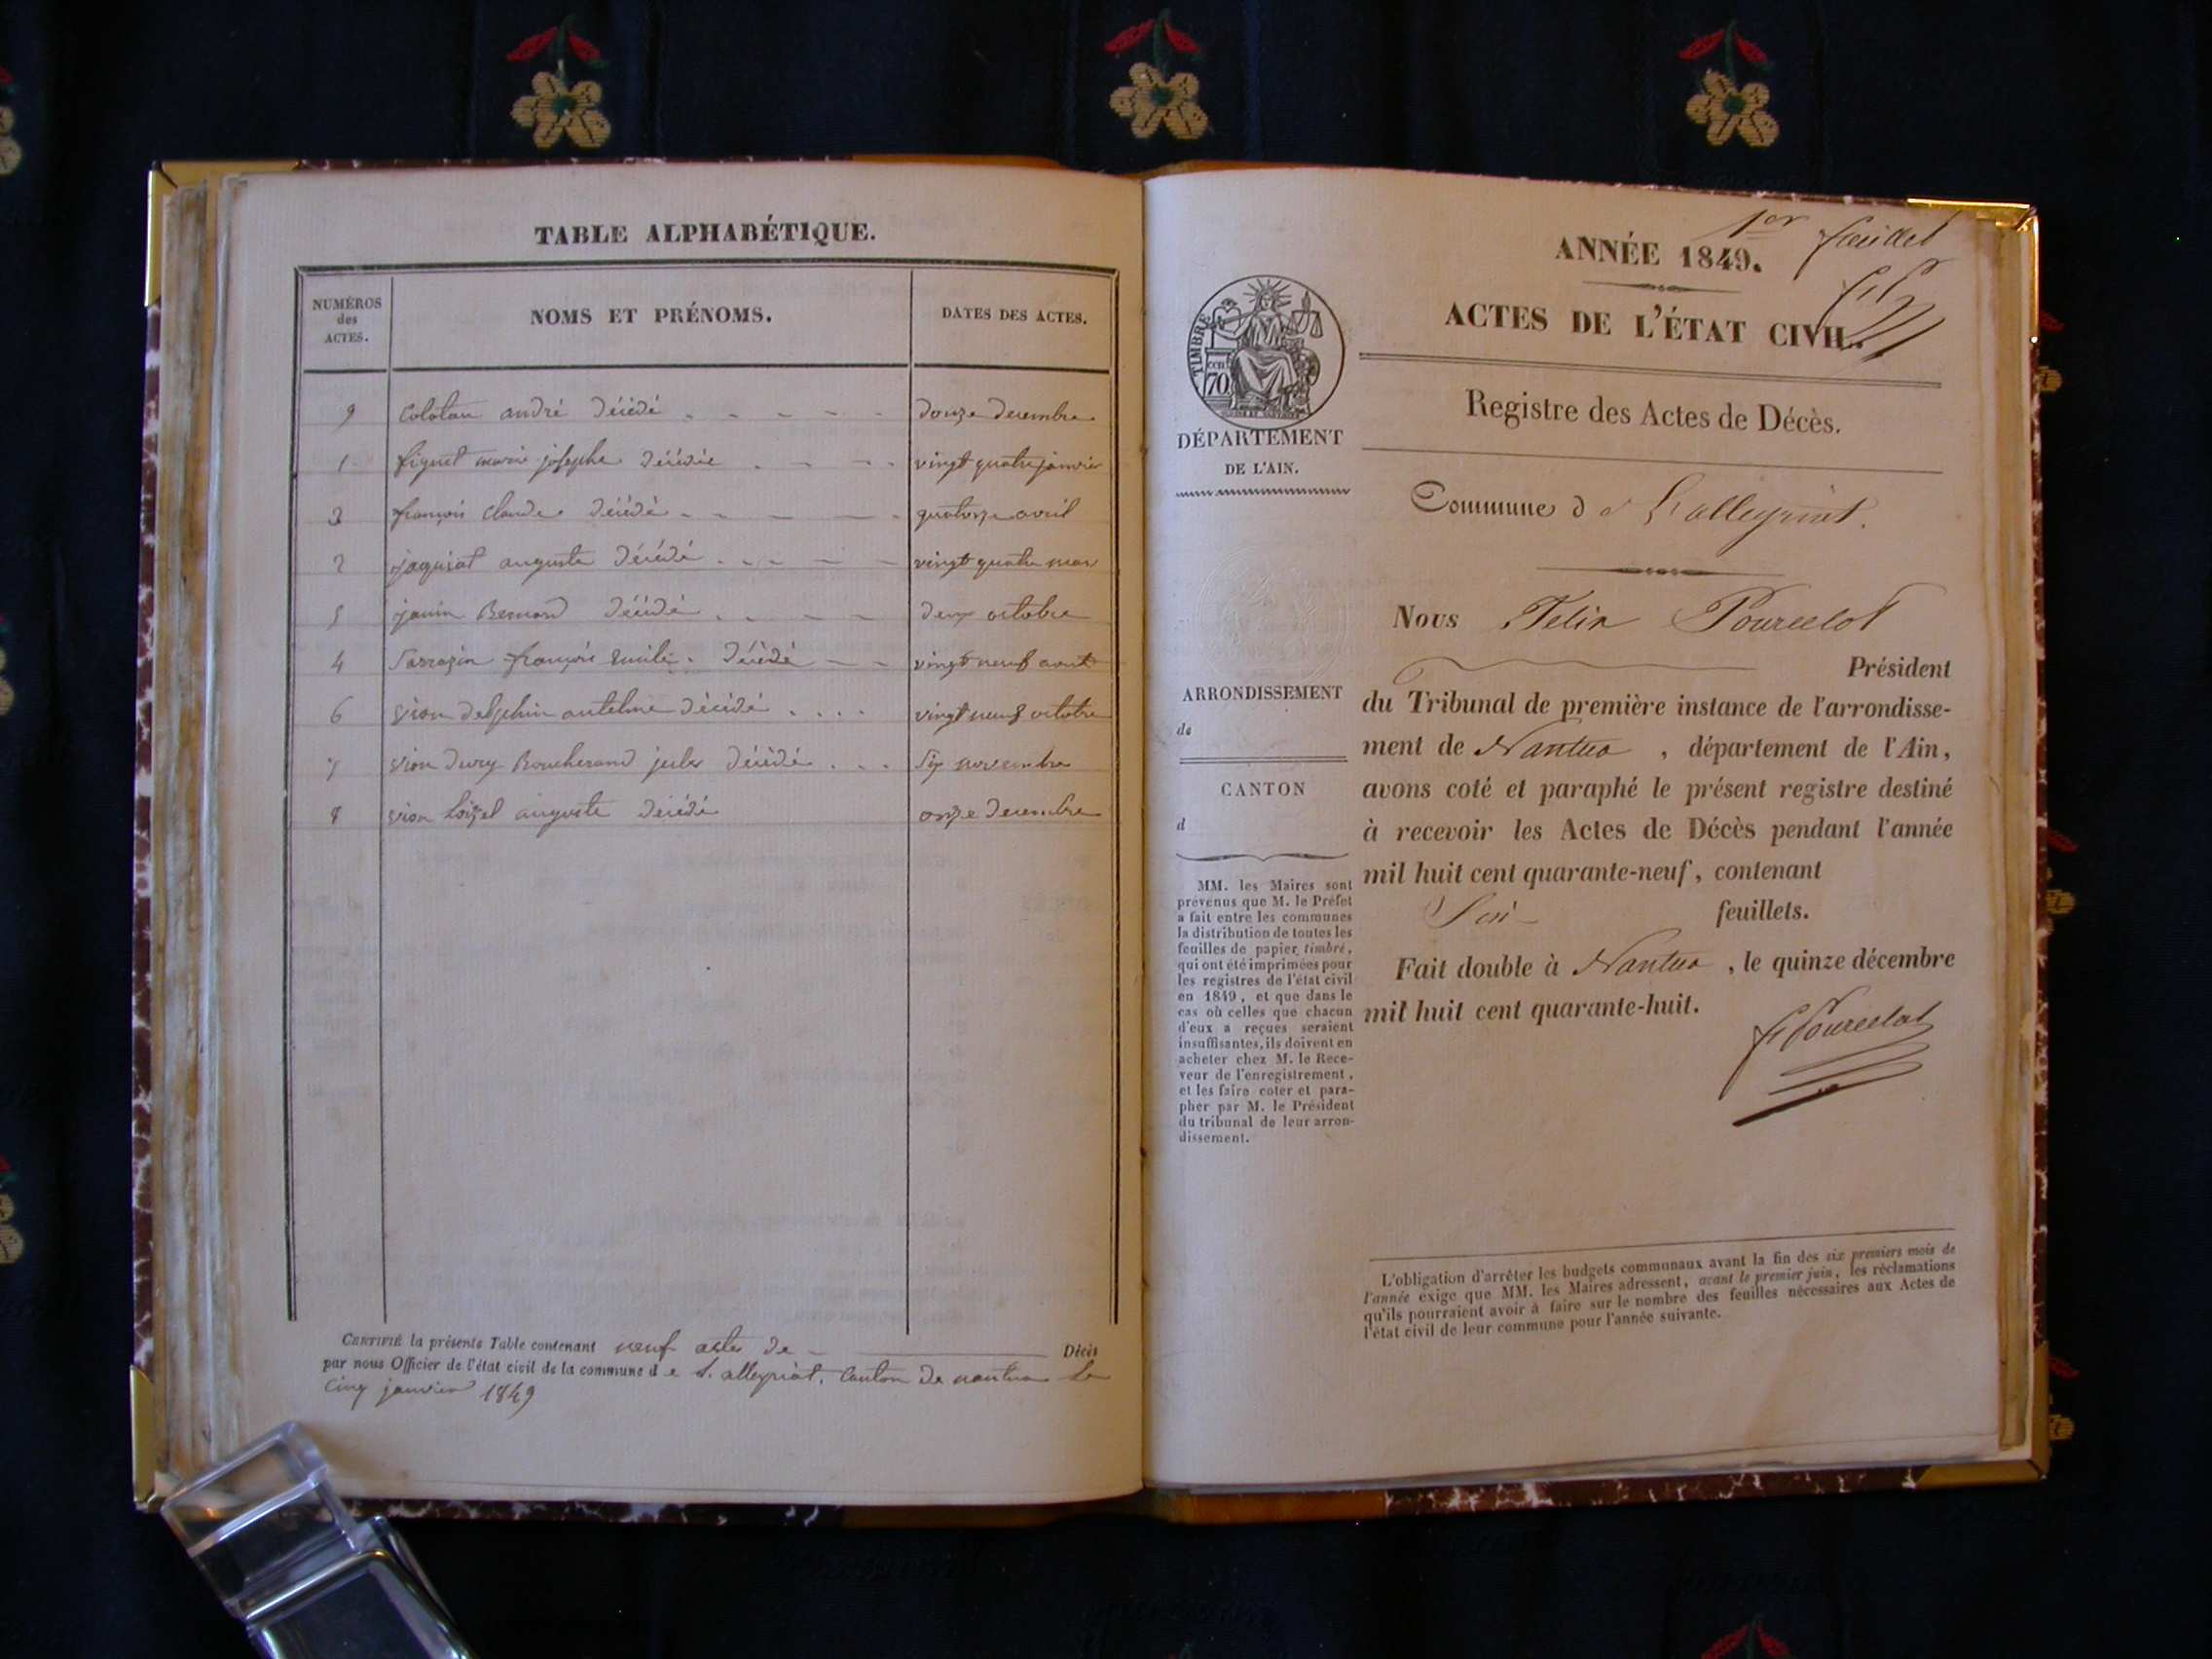 TABLE ALPHABÉTIQUE.
NUMÉROS
des
ACTES.
NOMS ET PRÉNOMS.
DATES DES ACTES.
9 andré décédé douze decembre
1 marie josephe décédée vingt quatre janvier
3 françois claude décédé quatorze avril
2 jaquiot auguste décédé vingt quatre mars
5 janin Bernard décédé deux octobre
4 Sarrazin françois Emile décédé vingt neuf aout
6 vion delphin antelme décédé vingt neuf octobre
7 vion dury Boucherand jules décédé six novembre
8 vion loizel auguste décédé onze decembre
CERTIFIÉ la présente Table contenant neuf actes de Décès
par nous Officier de l'état civil de la commune d e S. alleyriat, Canton de nantua le
Cinq janvier 1849
1er feuillet
ANNÉE 1849.
ACTES DE L'ÉTAT CIVIL.
TIMBRE
70
DÉPARTEMENT
DE L'AIN.
Registre des Actes de Décès.
Commune d
Nous Felix Pourcelot
Président
du Tribunal de première instance de l'arrondisse-
ment de Nantua , département de l'Ain,
avons coté et paraphé le présent registre destiné
à recevoir les Actes de Décès pendant l'année
mil huit cent quarante-neuf, contenant
feuillets.
Fait double à Nantua , le quinze décembre
mil huit cent quarante-huit.
Pourcelot
ARRONDISSEMENT
de
CANTON
d
MM. les Maires sont
prévenus que M. le Préfet
a fait entre les communes
la distribution de toutes les
feuilles de papier timbré,
qui ont été imprimées pour
les registres de l'état civil
en 1849, et que dans le
cas où celles que chacun
d'eux a reçues seraient
insuffisantes, ils doivent en
acheter chez M. le Rece-
veur de l'enregistrement,
et les faire coter et para-
pher par M. le Président
du tribunal de leur arron-
dissement.
L'obligation d'arrêter les budgets communaux avant la fin des six premiers mois de
l'année exige que MM. les Maires adressent, avant le premier juin, les réclamations
qu'ils pourraient avoir à faire sur le nombre des feuilles nécessaires aux Actes de
l'état civil de leur commune pour l'année suivante.